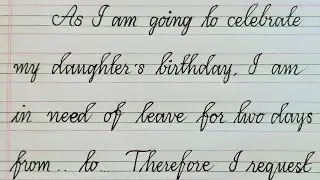 As I am going to celebrate
my daughter's birthday, I am
in need of leave for two days
from.. to... Therefore I request